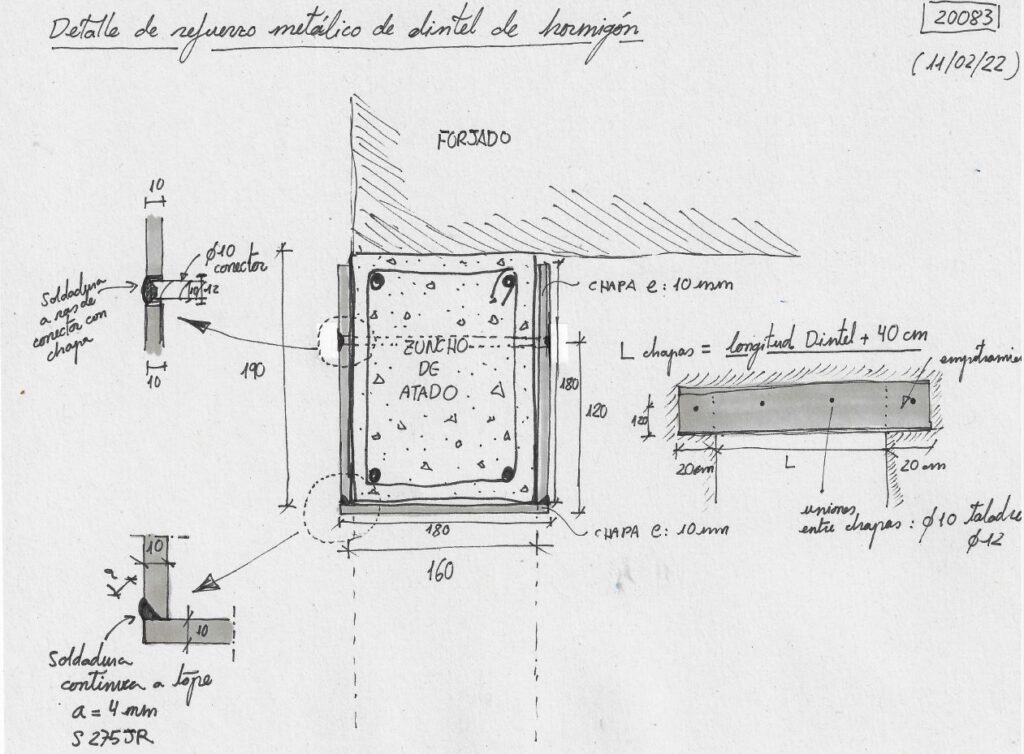 Detalle de refuerzo metálico de dintel de hormigón
20083
(11/02/22)
FORJADO
10
Ø10
conector
10
12
Soldadura
a ras de
conector con
chapa
10
190
ZUNCHO
DE
ATADO
CHAPA e: 10 mm
180
120
L chapas = longitud Dintel + 40 cm
120
20cm
L
20 cm
uniones
entre chapas : Ø10 taladro
Ø12
CHAPA e: 10 mm
180
160
10
10
Soldadura
continua a tope
a = 4 mm
S 275JR